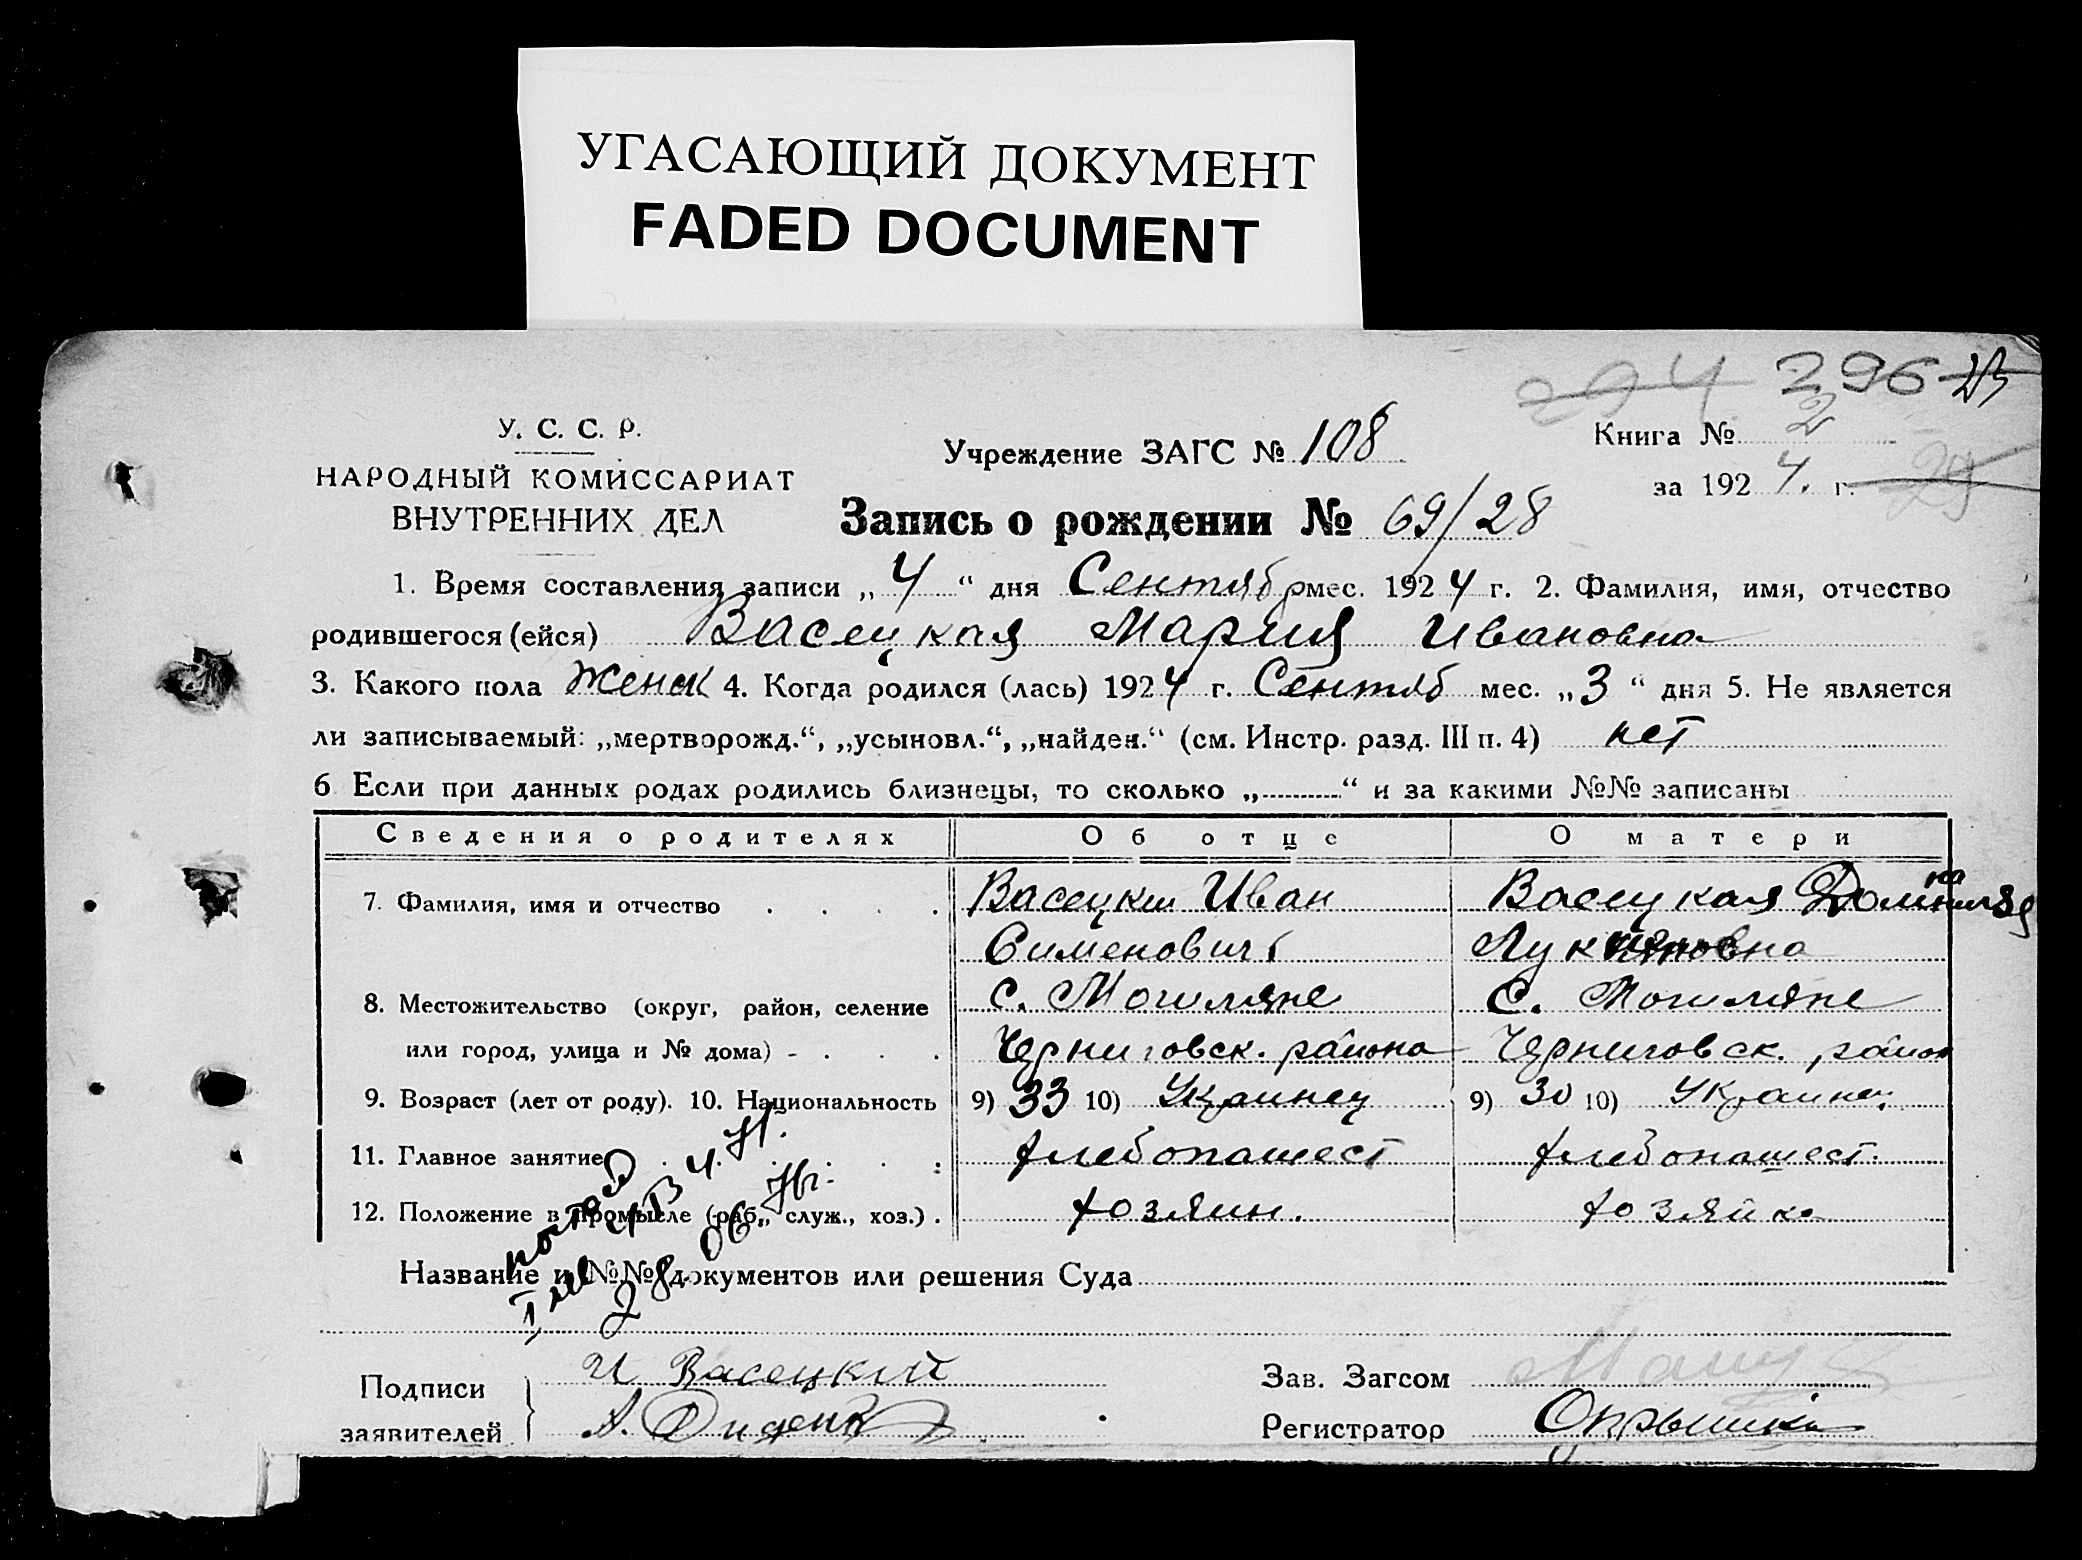 УГАСАЮЩИЙ ДОКУМЕНТ
FADED DOCUMENT
294 296
У. С. С. Р.
НАРОДНЫЙ КОМИССАРИАТ
ВНУТРЕННИХ ДЕЛ
Учреждение ЗАГС № 108
Книга № 2
за 1924. г. 29
Запись о рождении № 69/28
1. Время составления записи „4“ дня Сентябр мес. 1924 г. 2. Фамилия, имя, отчество
родившегося (ейся) Васецкая Мария Ивановна
3. Какого пола женск 4. Когда родился (лась) 1924 г. Сентяб мес. „3“ дня 5. Не является
ли записываемый: „мертворожд.“, „усыновл.“, „найден.“ (см. Инстр. разд. III п. 4) нет
6 Если при данных родах родились близнецы, то сколько „..........“ и за какими №№ записаны
Сведения о родителях Об отце О матери
7. Фамилия, имя и отчество Васецкий Иван Васецкая
Сименович
8. Местожительство (округ, район, селение с. Могиляне с. Могиляне
или город, улица и № дома) - Черниговск. района Черниговск. район
9. Возраст (лет от роду). 10. Национальность 9) 33 10) Украинец 9) 30 10) Украинец
11. Главное занятие хлебопашест хлебопашест.
12. Положение в промысле (раб., служ., хоз.) . хозяин. хозяйка
Название и №№ документов или решения Суда
Подписи
заявителей
И Васецкий
А. Диденко
Зав. Загсом
Регистратор